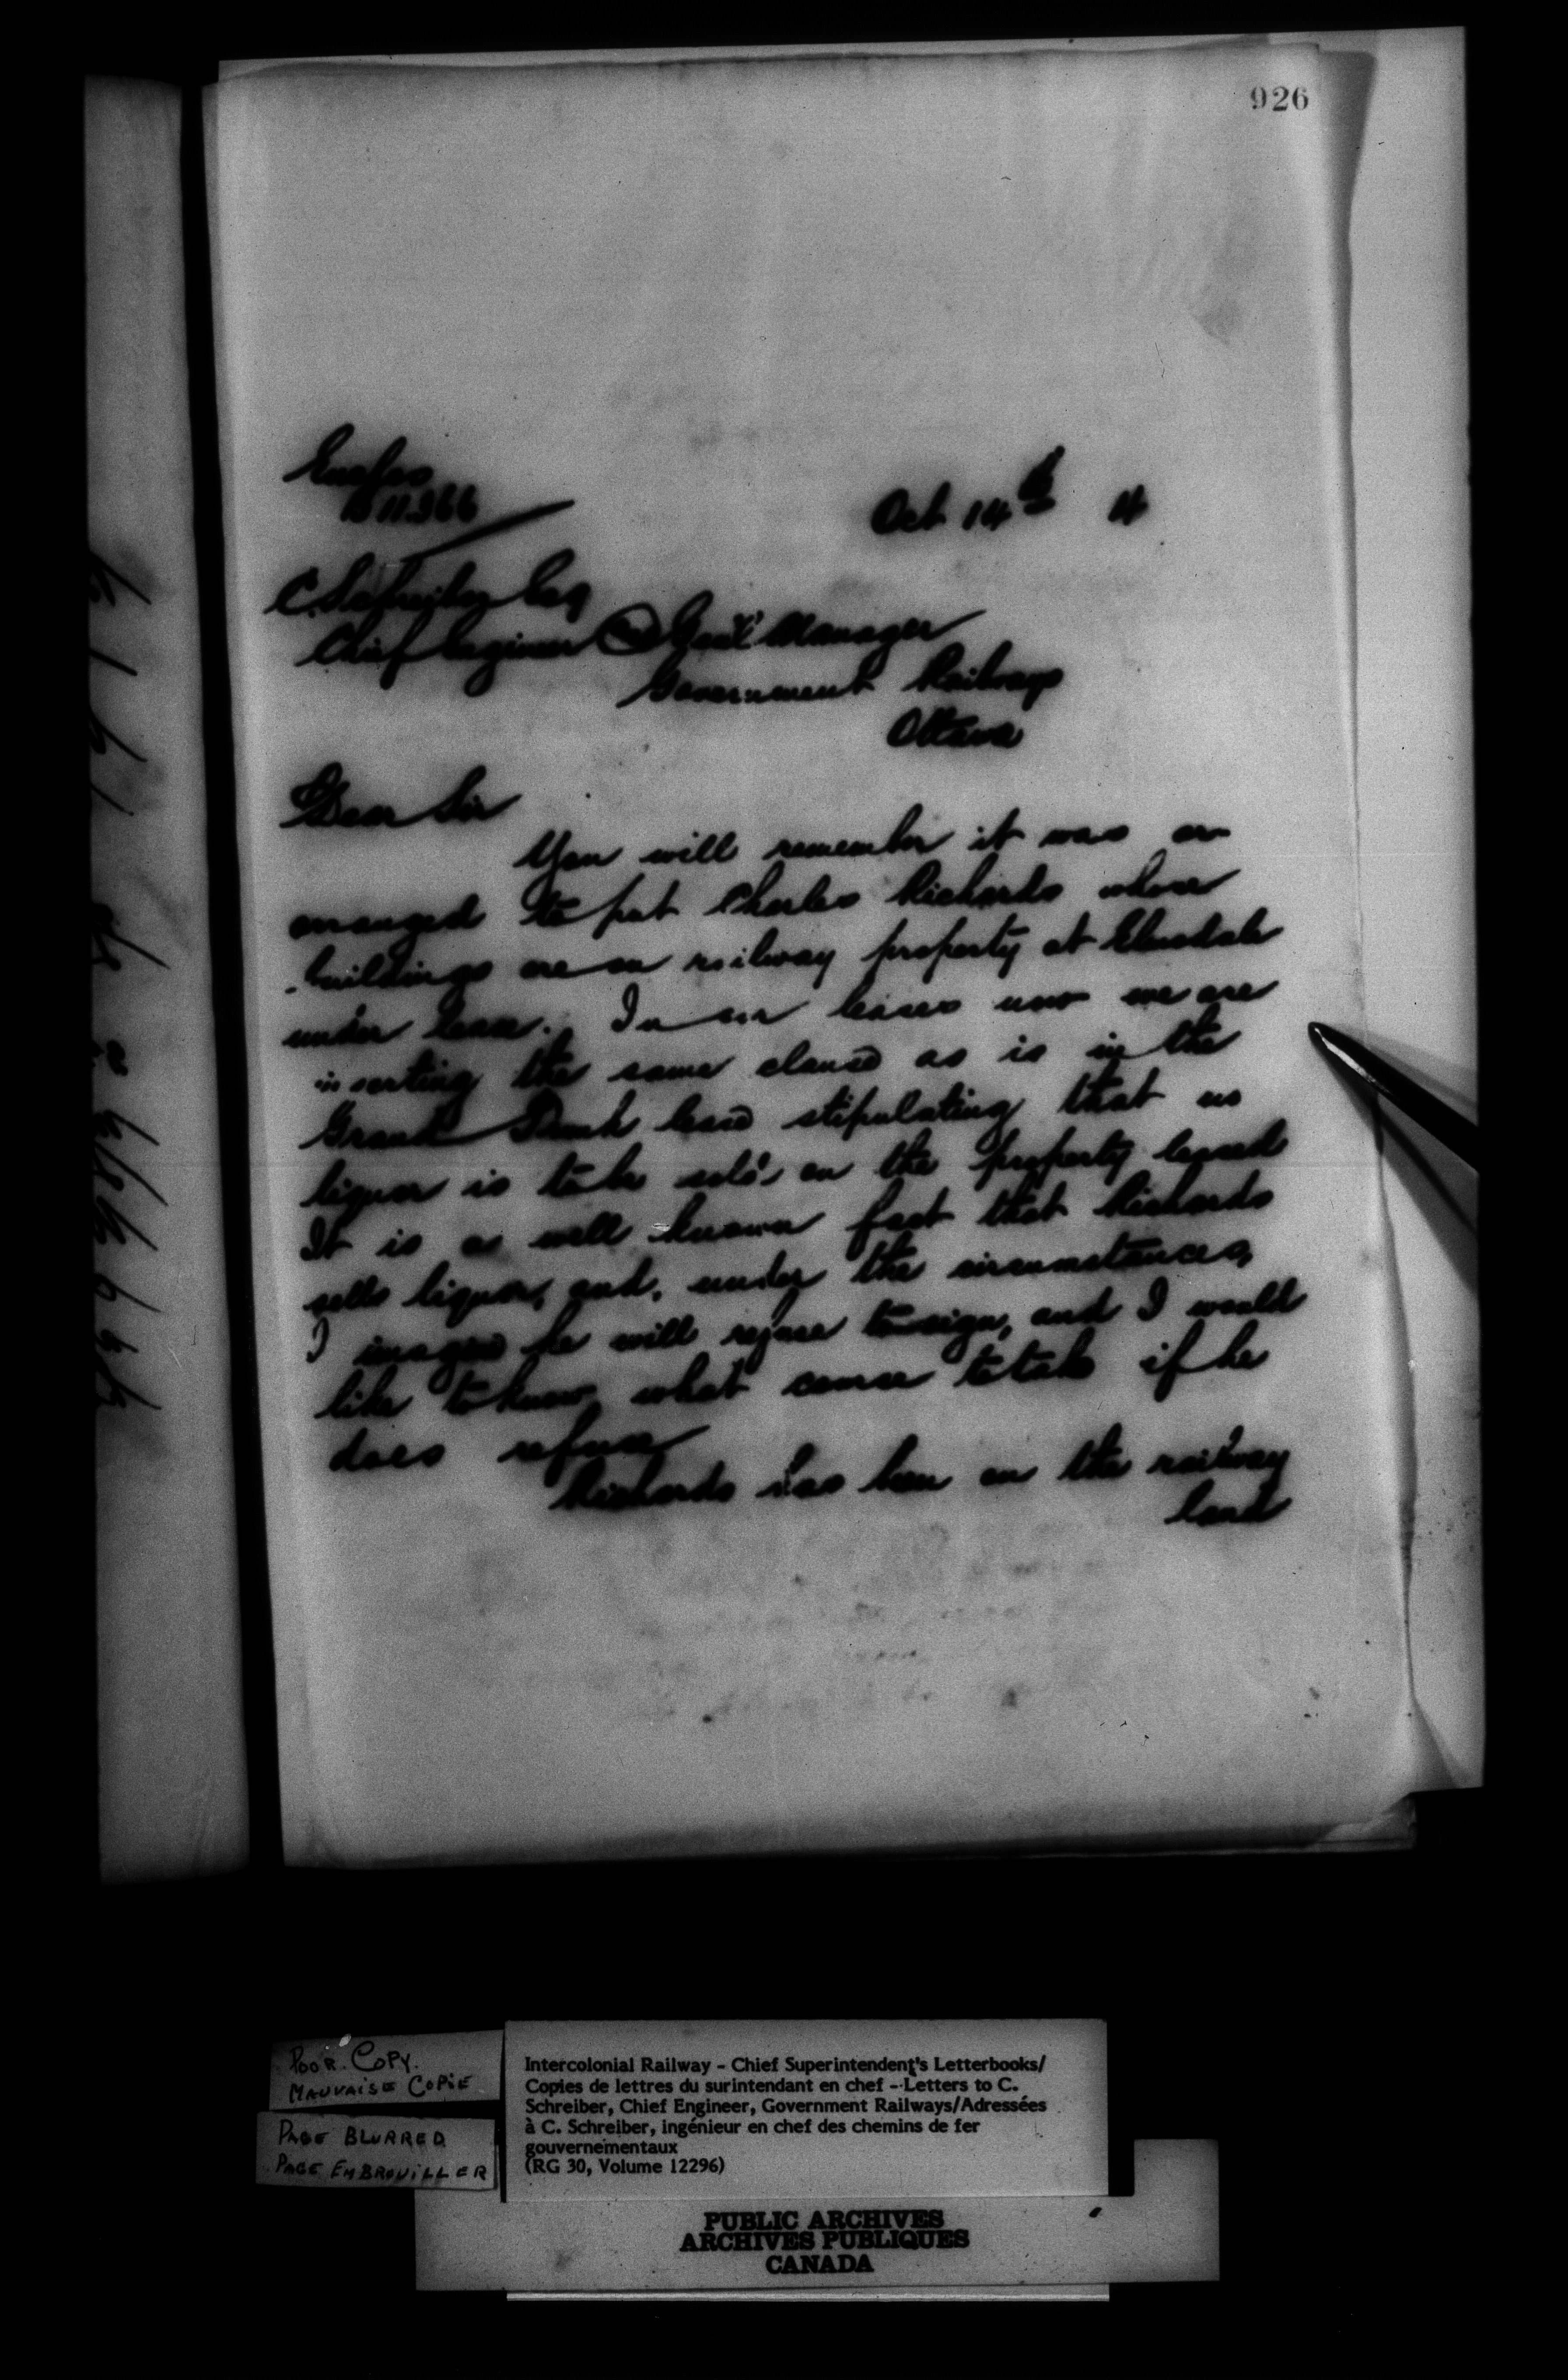 926
Enclos
B 11366
Oct 14th 4
C. Schreiber Esq
Chief Engineer & Genl Manager
Government Railways
Ottawa
Dear Sir
You will remember it was ar
arranged to put Charles Richards whose
buildings are on railway property at
under lease. In our leases now we are
inserting the same clause as is in the
Grand Trunk lease stipulating that no
liquor is to be sold on the property leased
It is a well known fact that Richards
sells liquor, and, under the circumstances,
I imagine he will refuse to sign, and I would
like to know what course to take if he
does refuse
Richards has been on the railway
land
POOR COPY.
MAUVAISE COPIE
PAGE BLURRED
PAGE EMBROUILLER
Intercolonial Railway - Chief Superintendent's Letterbooks/
Copies de lettres du surintendant en chef - Letters to C.
Schreiber, Chief Engineer, Government Railways/Adressées
à C. Schreiber, ingénieur en chef des chemins de fer
gouvernementaux
(RG 30, Volume 12296)
PUBLIC ARCHIVES
ARCHIVES PUBLIQUES
CANADA